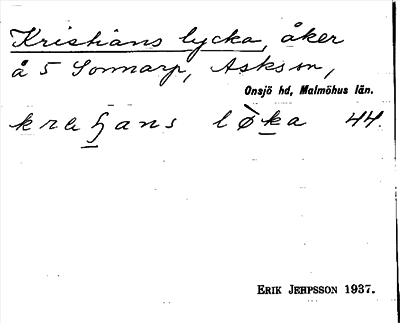 Kristians lycka, åker
å 5 Sonnarp, Asks sn,
Onsjö hd, Malmöhus län.
løka 44.
ERIK JEHPSSON 1937.